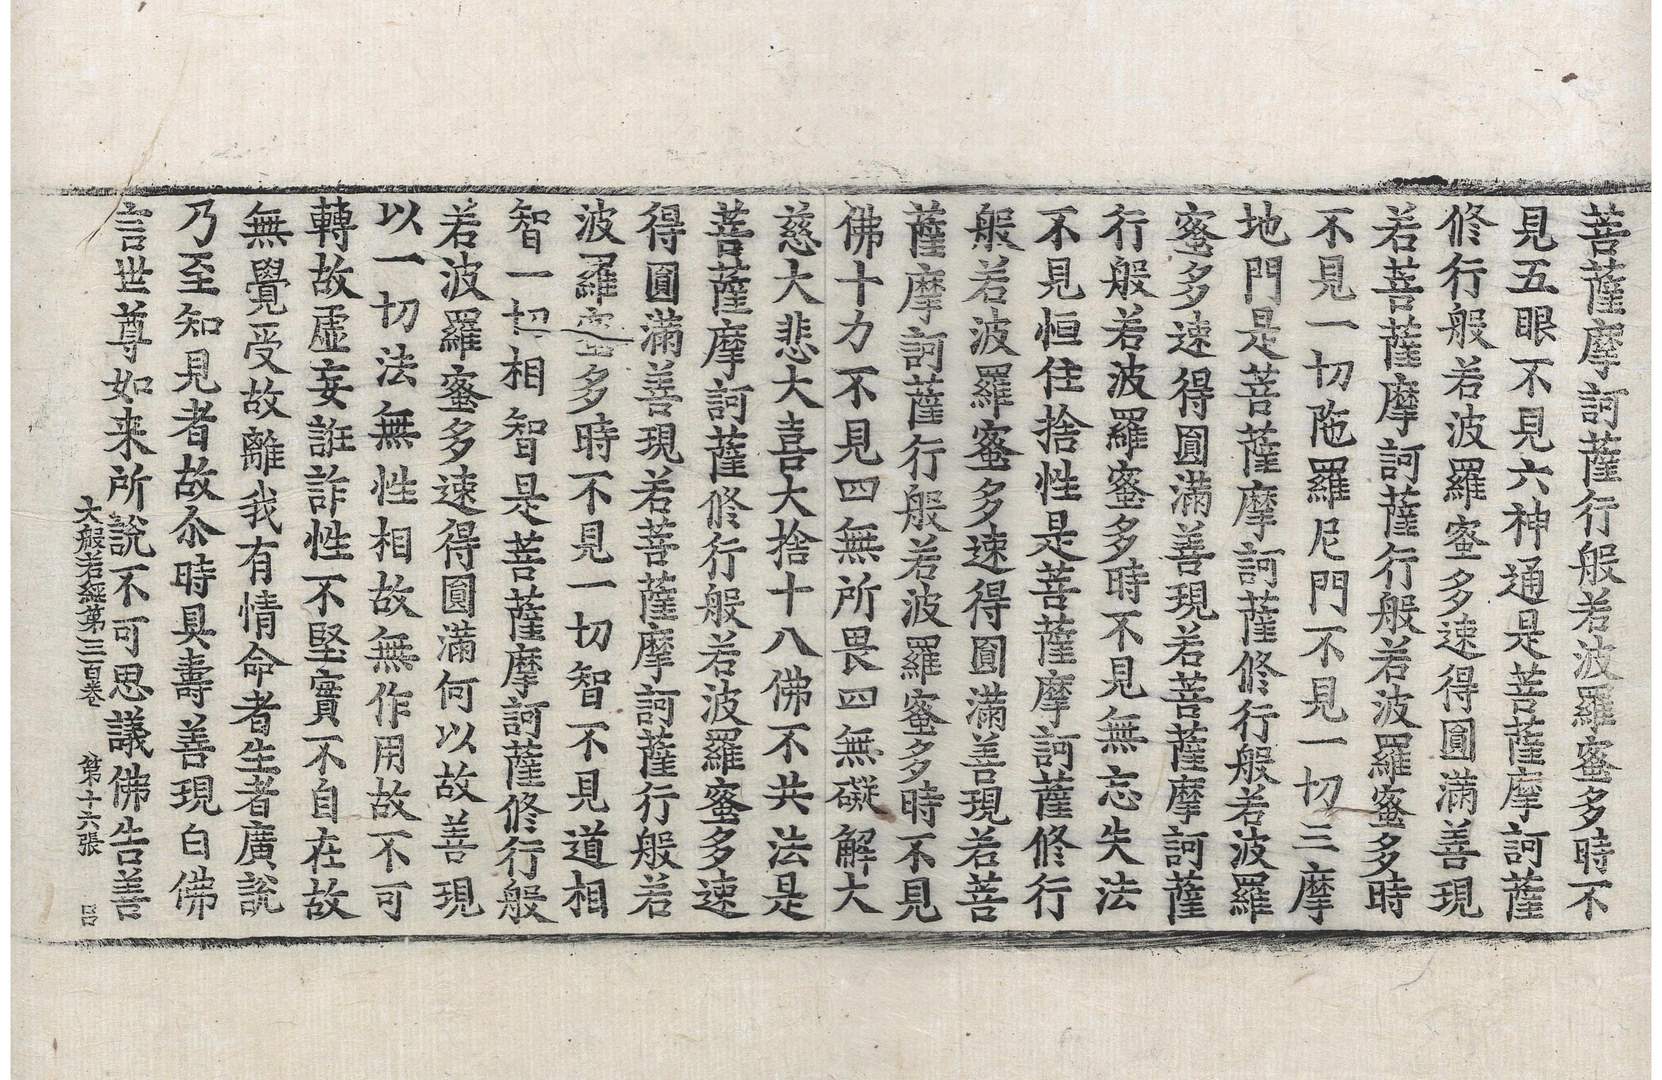 菩薩摩訶薩行般若波羅蜜多時不
見五眼不見六神通是菩薩摩訶薩
修行般若波羅蜜多速得圓滿善現
若菩薩摩訶薩行般若波羅蜜多時
不見一切陁羅尼門不見一切三摩
地門是菩薩摩訶薩修行般若波羅
蜜多速得圓滿善現若菩薩摩訶薩
行般若波羅蜜多時不見無忘失法
不見恒住捨性是菩薩摩訶薩修行
般若波羅蜜多速得圓滿善現若菩
薩摩訶薩行般若波羅蜜多時不見
佛十力不見四無所畏四無礙解大
慈大悲大喜大捨十八佛不共法是
菩薩摩訶薩修行般若波羅蜜多速
得圓滿善現若菩薩摩訶薩行般若
波羅蜜多時不見一切智不見道相
智一切相智是菩薩摩訶薩修行般
若波羅蜜多速得圓滿何以故善現
以一切法無性相故無作用故不可
轉故虛妄誑詐性不堅實不自在故
無覺受故離我有情命者生者廣說
乃至知見者故尒時具壽善現白佛
言世尊如来所說不可思議佛告善
大般若經第三百卷 第十六張 呂